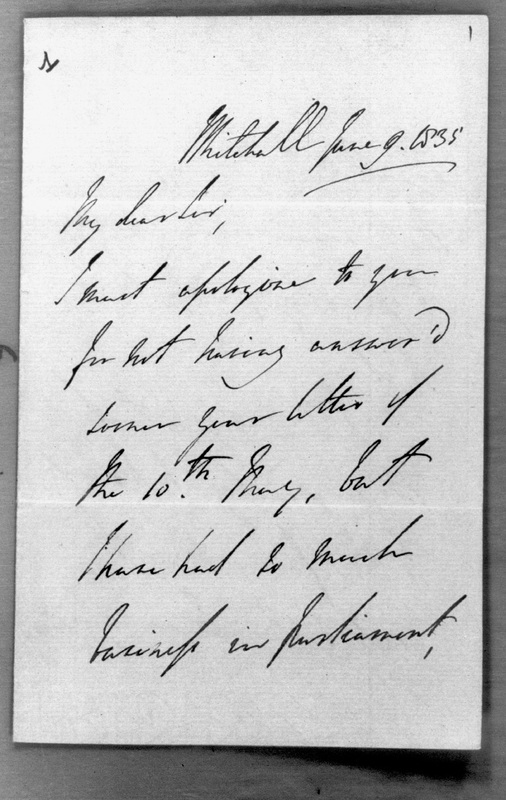 1
Whitehall June 9. 1835
My dear Sir,
I must apologise to you
for not having answer'd
sooner your letter of
the 10.th May, but
I have had so much
business in Parliament,